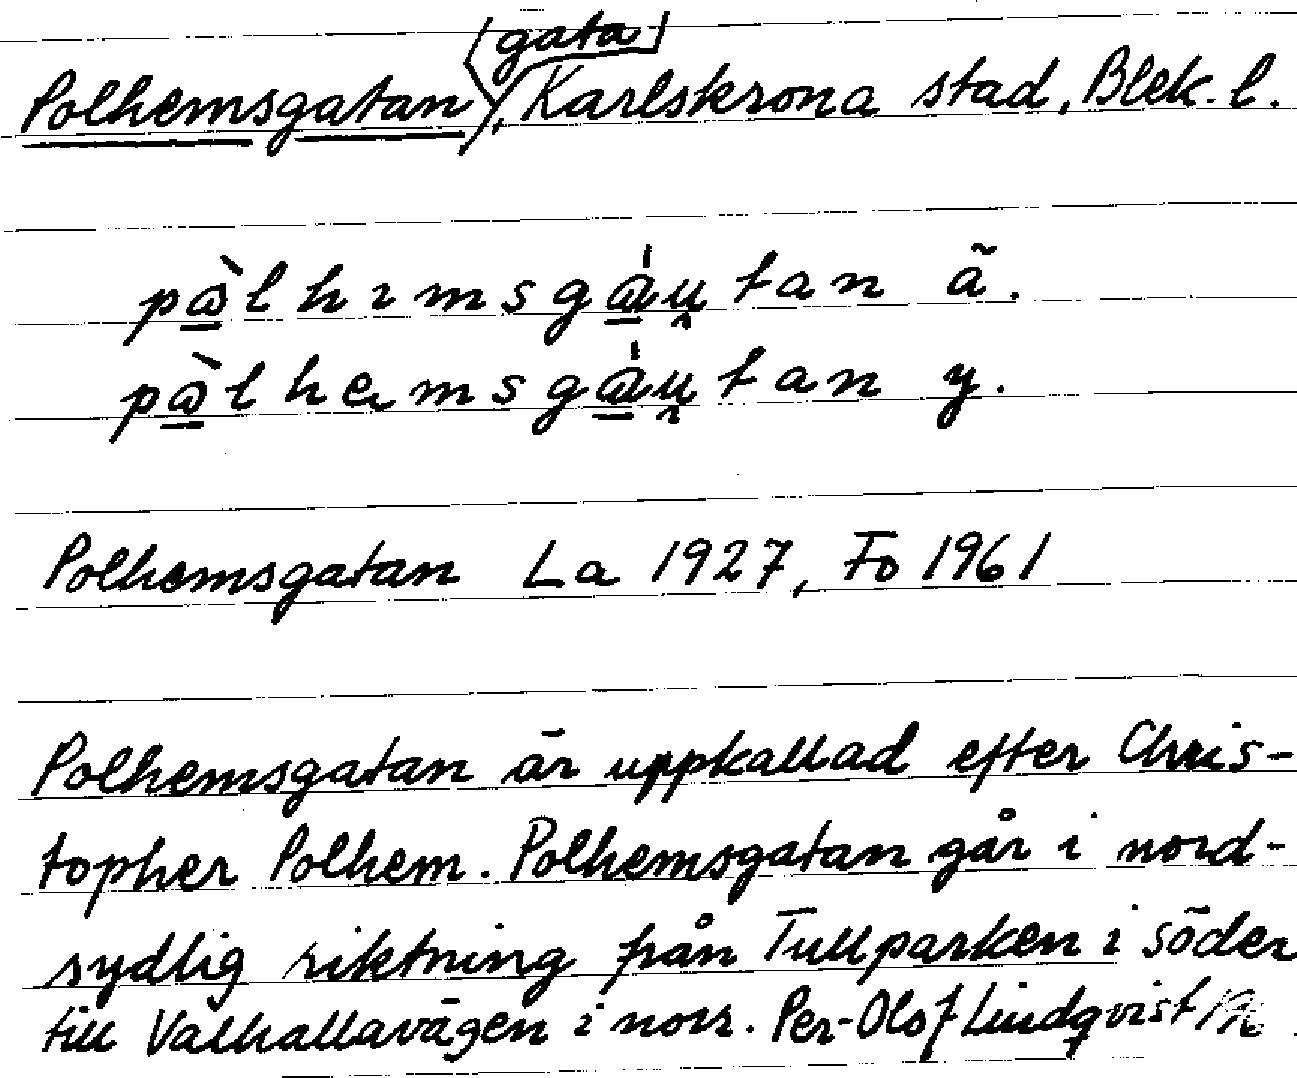 [gata]
Polhemsgatan, Karlskrona stad, Blek. l.
pὰlhımsgáu̯tan ä.
pὰlhemsgáu̯tan y.
Polhemsgatan La 1927, Fo 1961
Polhemsgatan är uppkallad efter Chris-
topher Polhem. Polhemsgatan går i nord-
sydlig riktning från Tullparken i söder
till Valhallavägen i norr. Per-Olof Lindqvist